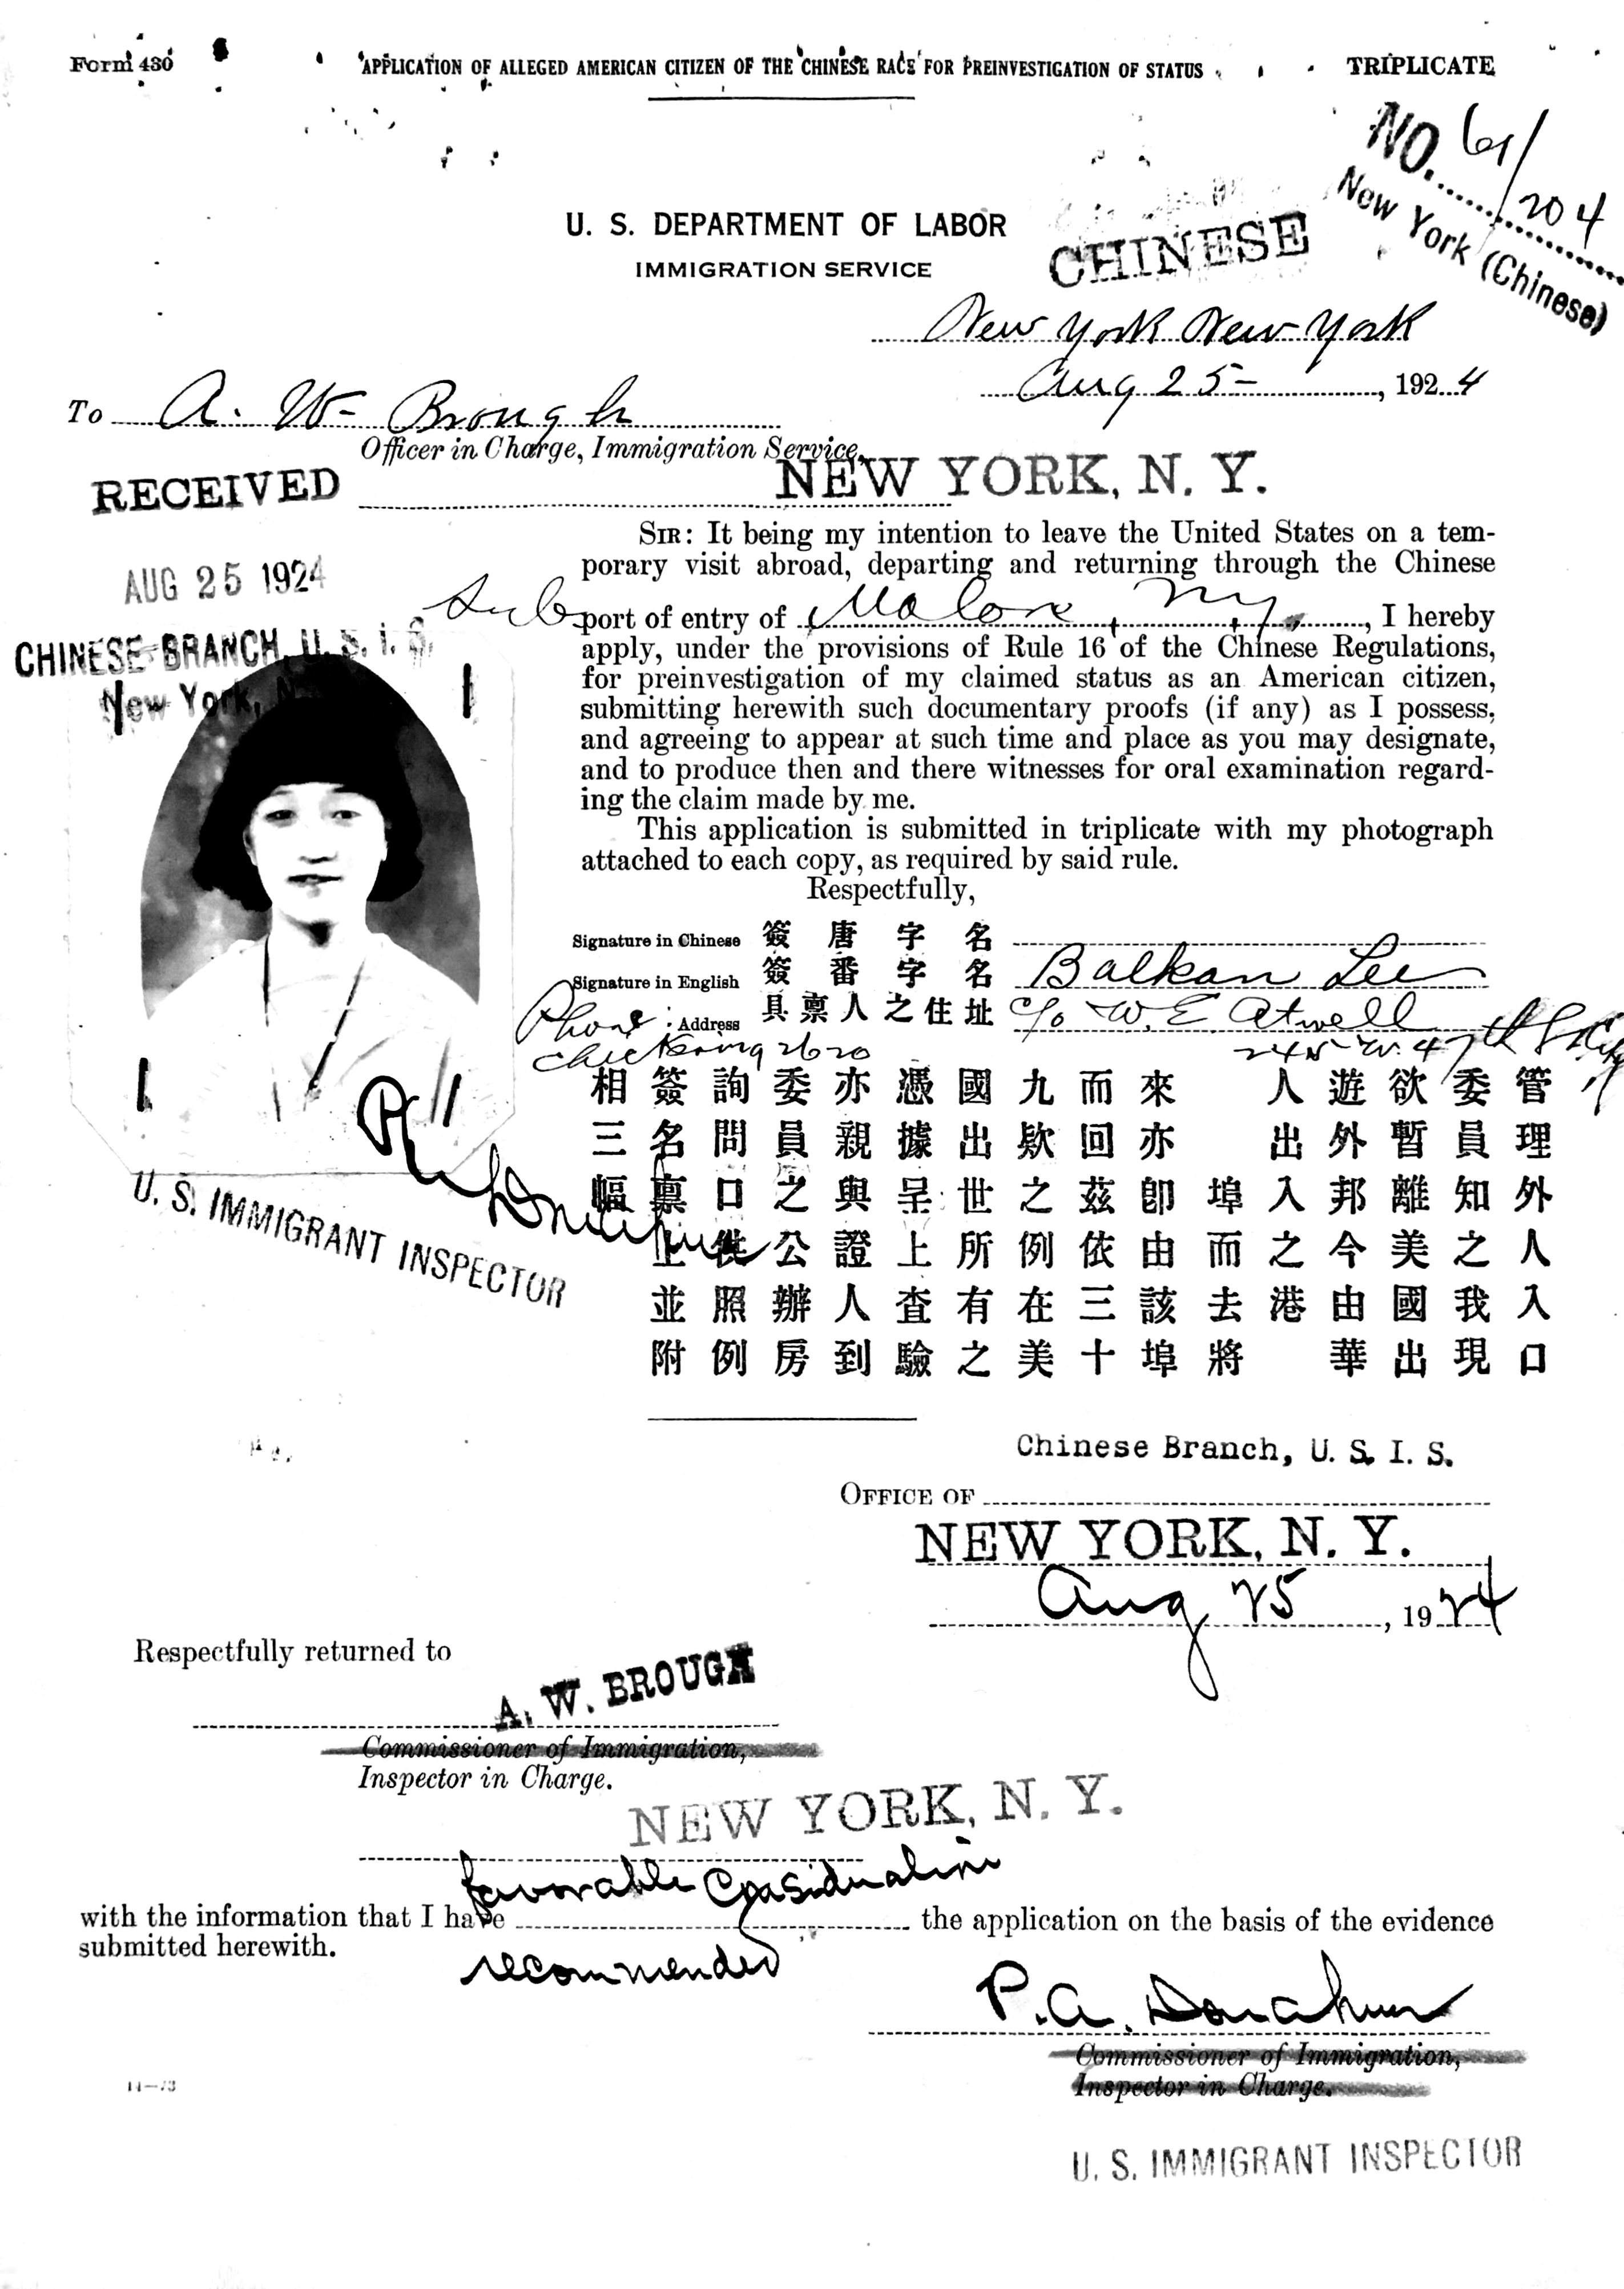 Form 430
APPLICATION OF ALLEGED AMERICAN CITIZEN OF THE CHINESE RACE FOR PREINVESTIGATION OF STATUS
TRIPLICATE
NO. 61/204
New York (Chinese)
U. S. DEPARTMENT OF LABOR
IMMIGRATION SERVICE
CHINESE
New York New York
Aug 25 –, 1924
To A. W. Brough
Officer in Charge, Immigration Service,
NEW YORK, N. Y.
RECEIVED
AUG 25 1924
CHINESE BRANCH, U. S. I. S.
New York, N.
SIR: It being my intention to leave the United States on a tem-
porary visit abroad, departing and returning through the Chinese
Sub port of entry of Malone, N Y, I hereby
apply, under the provisions of Rule 16 of the Chinese Regulations,
for preinvestigation of my claimed status as an American citizen,
submitting herewith such documentary proofs (if any) as I possess,
and agreeing to appear at such time and place as you may designate,
and to produce then and there witnesses for oral examination regard-
ing the claim made by me.
This application is submitted in triplicate with my photograph
attached to each copy, as required by said rule.
Respectfully,
Signature in Chinese 簽唐字名
Signature in English 簽番字名 Balkan Lee
Address 具禀人之住址 c/o W. E. Atwell
245 W. 47th St
Phone
Chickering 2620
管理外人入口
委員知之我現
欲暫離美國出
遊外邦今由華
人出入之港
埠而去將
來亦卽由該埠
而回茲依三十
九欵之例在美
國出世所有之
憑據呈上查驗
亦親與證人到
委員之公辦房
詢問口供照例
簽名禀上並附
相三幅
U. S. IMMIGRANT INSPECTOR
Chinese Branch, U. S. I. S.
OFFICE OF
NEW YORK, N. Y.
Aug 25, 1924
Respectfully returned to
A. W. BROUGH
Commissioner of Immigration,
Inspector in Charge.
NEW YORK, N. Y.
favorable consideration
with the information that I have the application on the basis of the evidence
submitted herewith.
recommended
P. A. Donahue
Commissioner of Immigration,
Inspector in Charge.
U. S. IMMIGRANT INSPECTOR